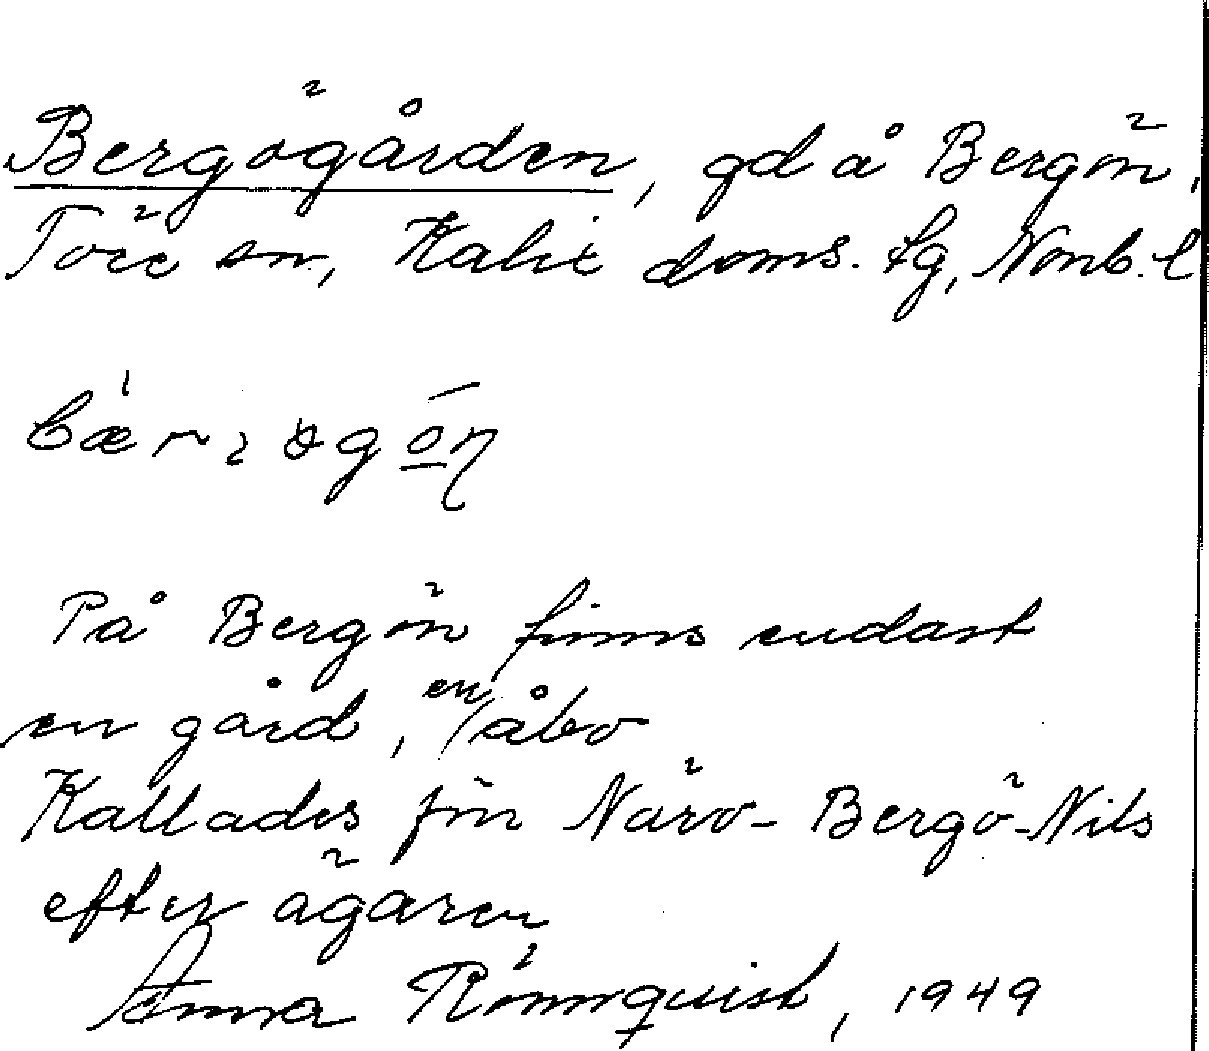 Bergögården, gd å Bergön,
Töre sn, Kalix doms. fg, Nonb. l
På Bergön finns endast
en gård, en åbo
Kallades för Närv- Bergö-Nils
efter ägaren
Anna Rönnquist, 1949